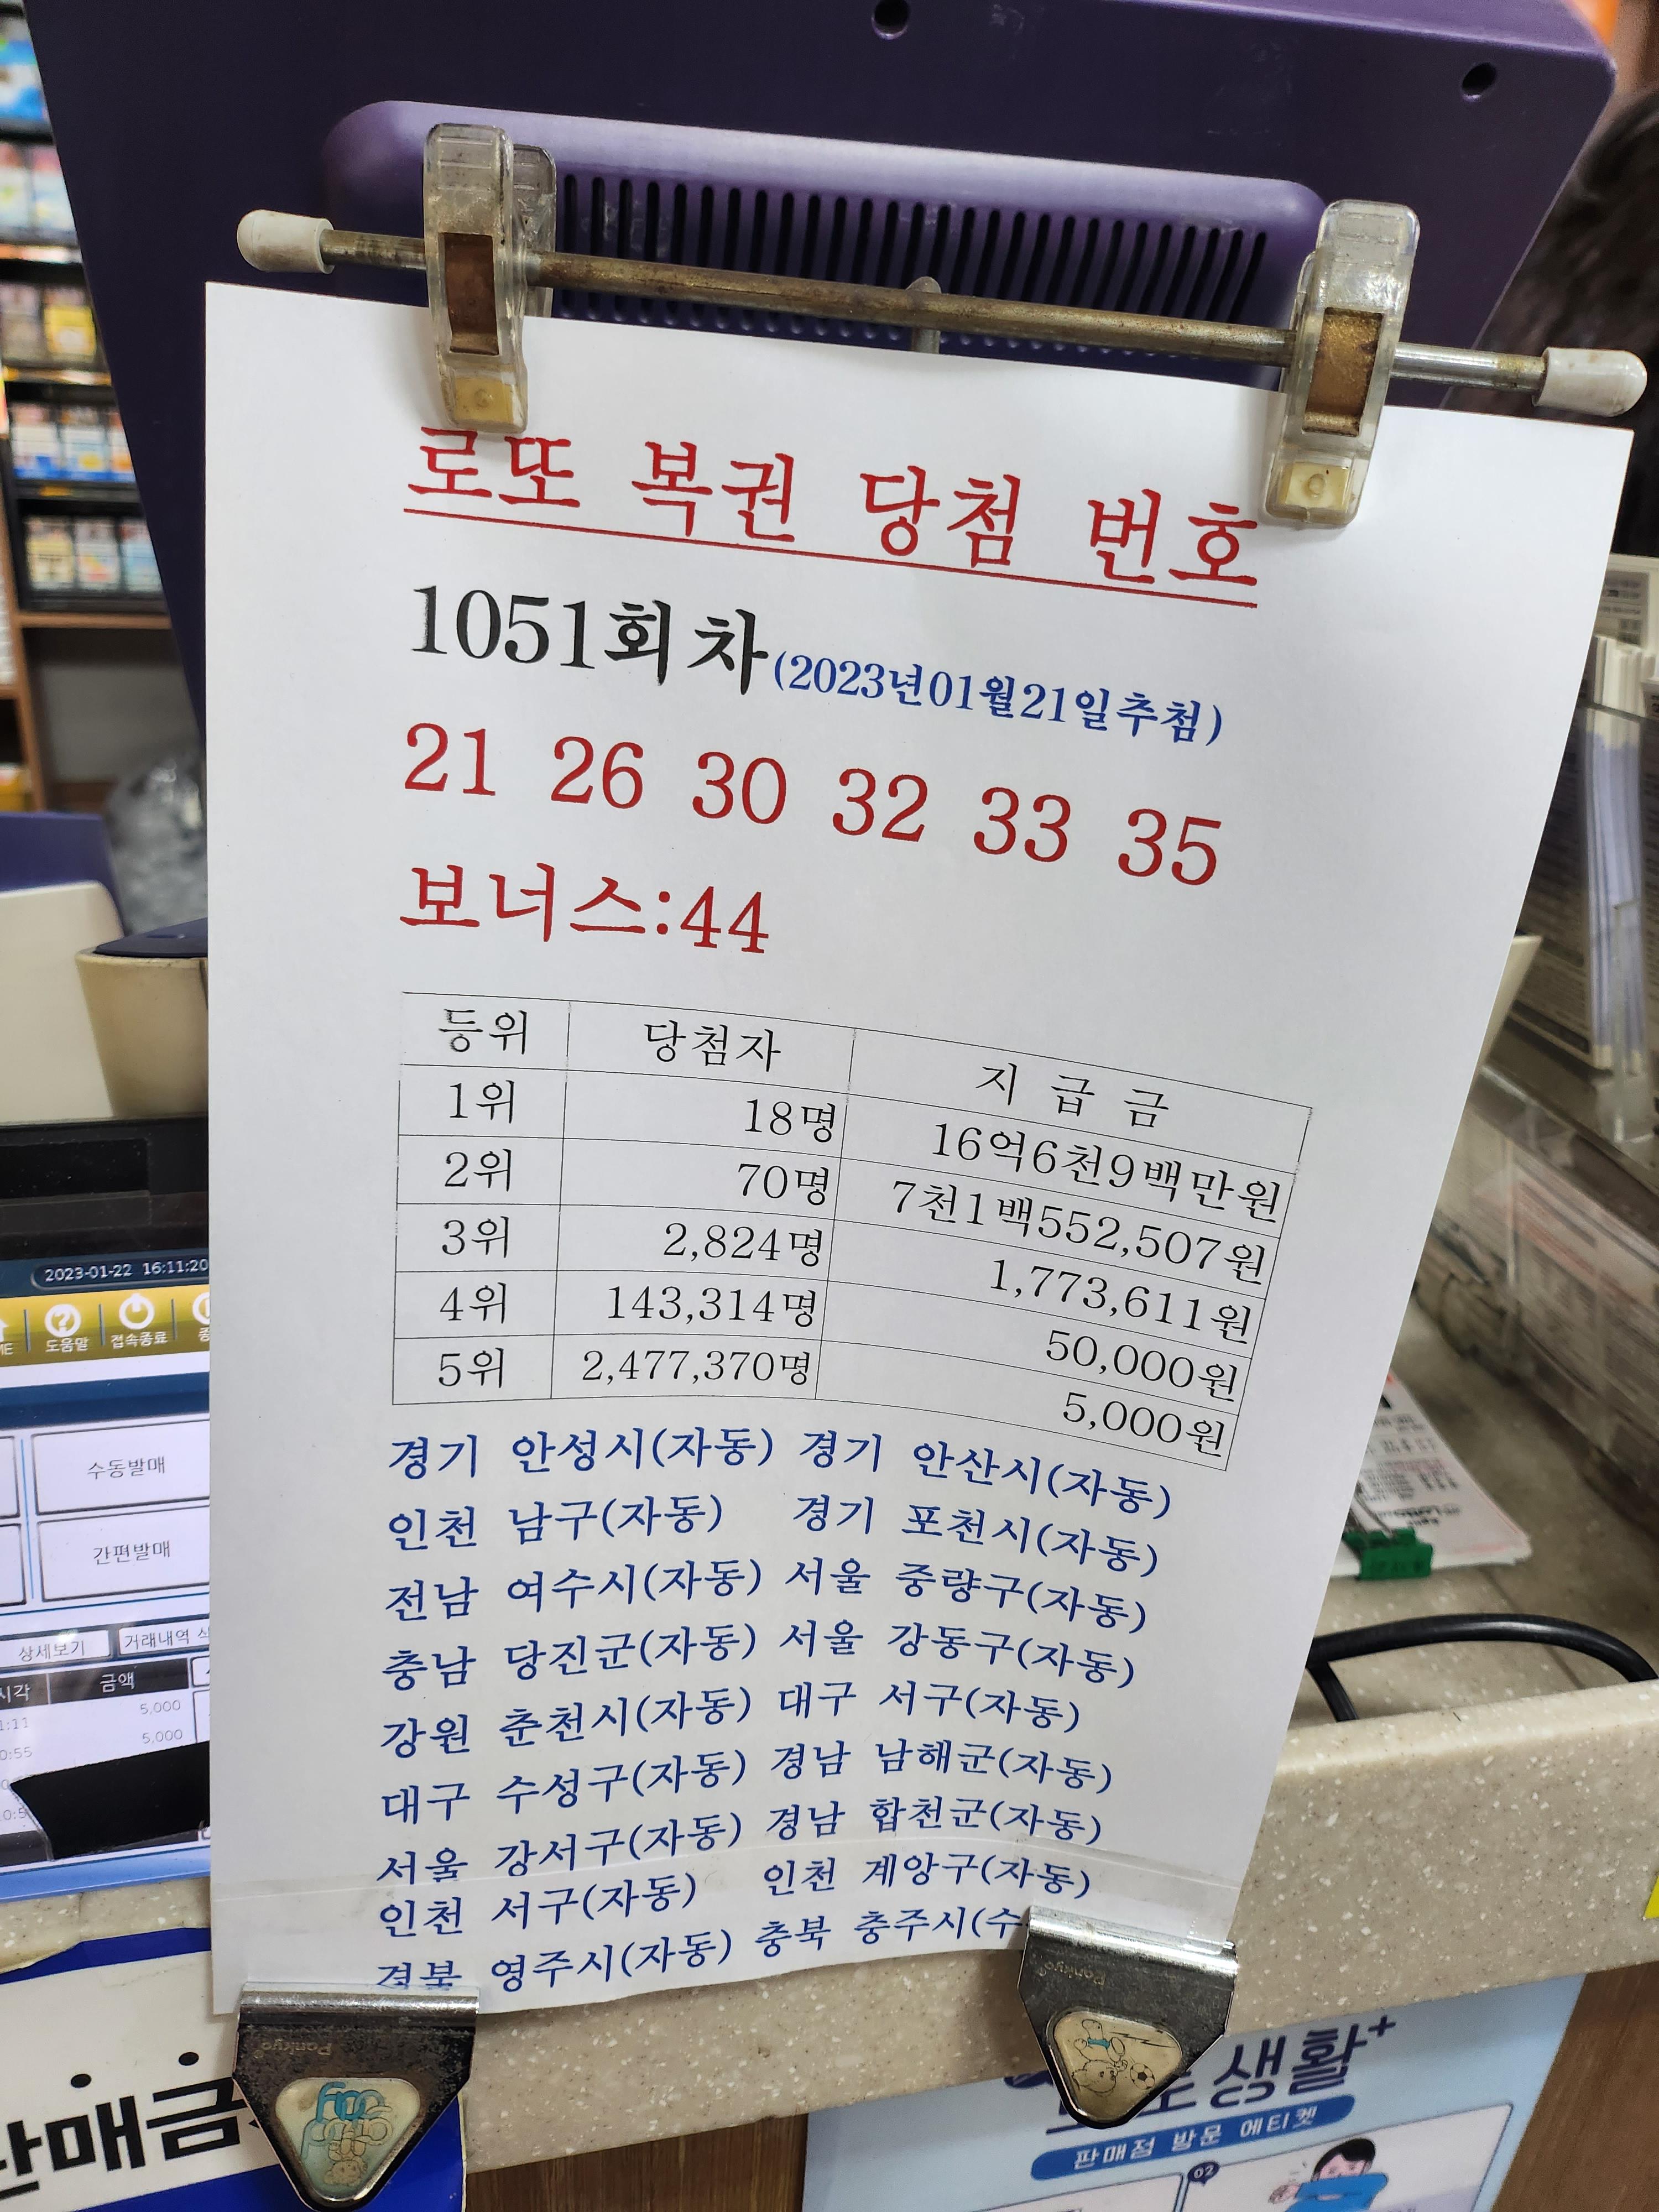 로또 복권 당첨 번호
1051회차(2023년01월21일추첨)
21 26 30 32 33 35
보너스:44
등위 당첨자 지 급 금
1위 18명 16억6천9백만원
2위 70명 7천1백552,507원
3위 2,824명 1,773,611원
4위 143,314명 50,000원
5위 2,477,370명 5,000원
경기 안성시(자동) 경기 안산시(자동)
인천 남구(자동) 경기 포천시(자동)
전남 여수시(자동) 서울 중랑구(자동)
충남 당진군(자동) 서울 강동구(자동)
강원 춘천시(자동) 대구 서구(자동)
대구 수성구(자동) 경남 남해군(자동)
서울 강서구(자동) 경남 합천군(자동)
인천 서구(자동) 인천 계양구(자동)
경북 영주시(자동) 충북 충주시(수
2023-01-22 16:11:20
도움말 접속종료
수동발매
간편발매
상세보기 거래내역
금액
5,000
5,000
Pankyo
Pankyo
판매금
생활+
판매점 방문 에티켓
02